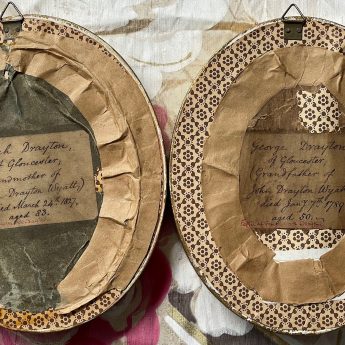 h Drayton,
f Gloucester,
ndmother of
Drayton Wyatt,)
ied March 24th 1817,
aged 83.
George Drayton
of Gloucester,
(Grandfather of
John Drayton Wyatt
died Jany 7th
aged 50